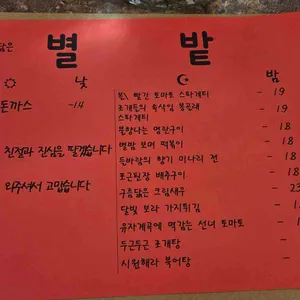 닮은
별 밭
낮
밤
돈까스 - 14
친절과 진심을 팔겠습니다
와주셔서 고맙습니다
빨간 토마토 스파게티 - 19
조개들의 속삭임 봉골레
스파게티 - 19
불향나는 명란구이 - 18
별밤 보며 떡볶이 - 18
들바람의 향기 미나리 전 - 18
포근된장 배추구이 - 18
구름닮은 크림새우 - 23
달빛 보라 가지튀김
유자계곡에 멱감는 선녀 토마토
두근두근 조개탕
시원해라 북어탕